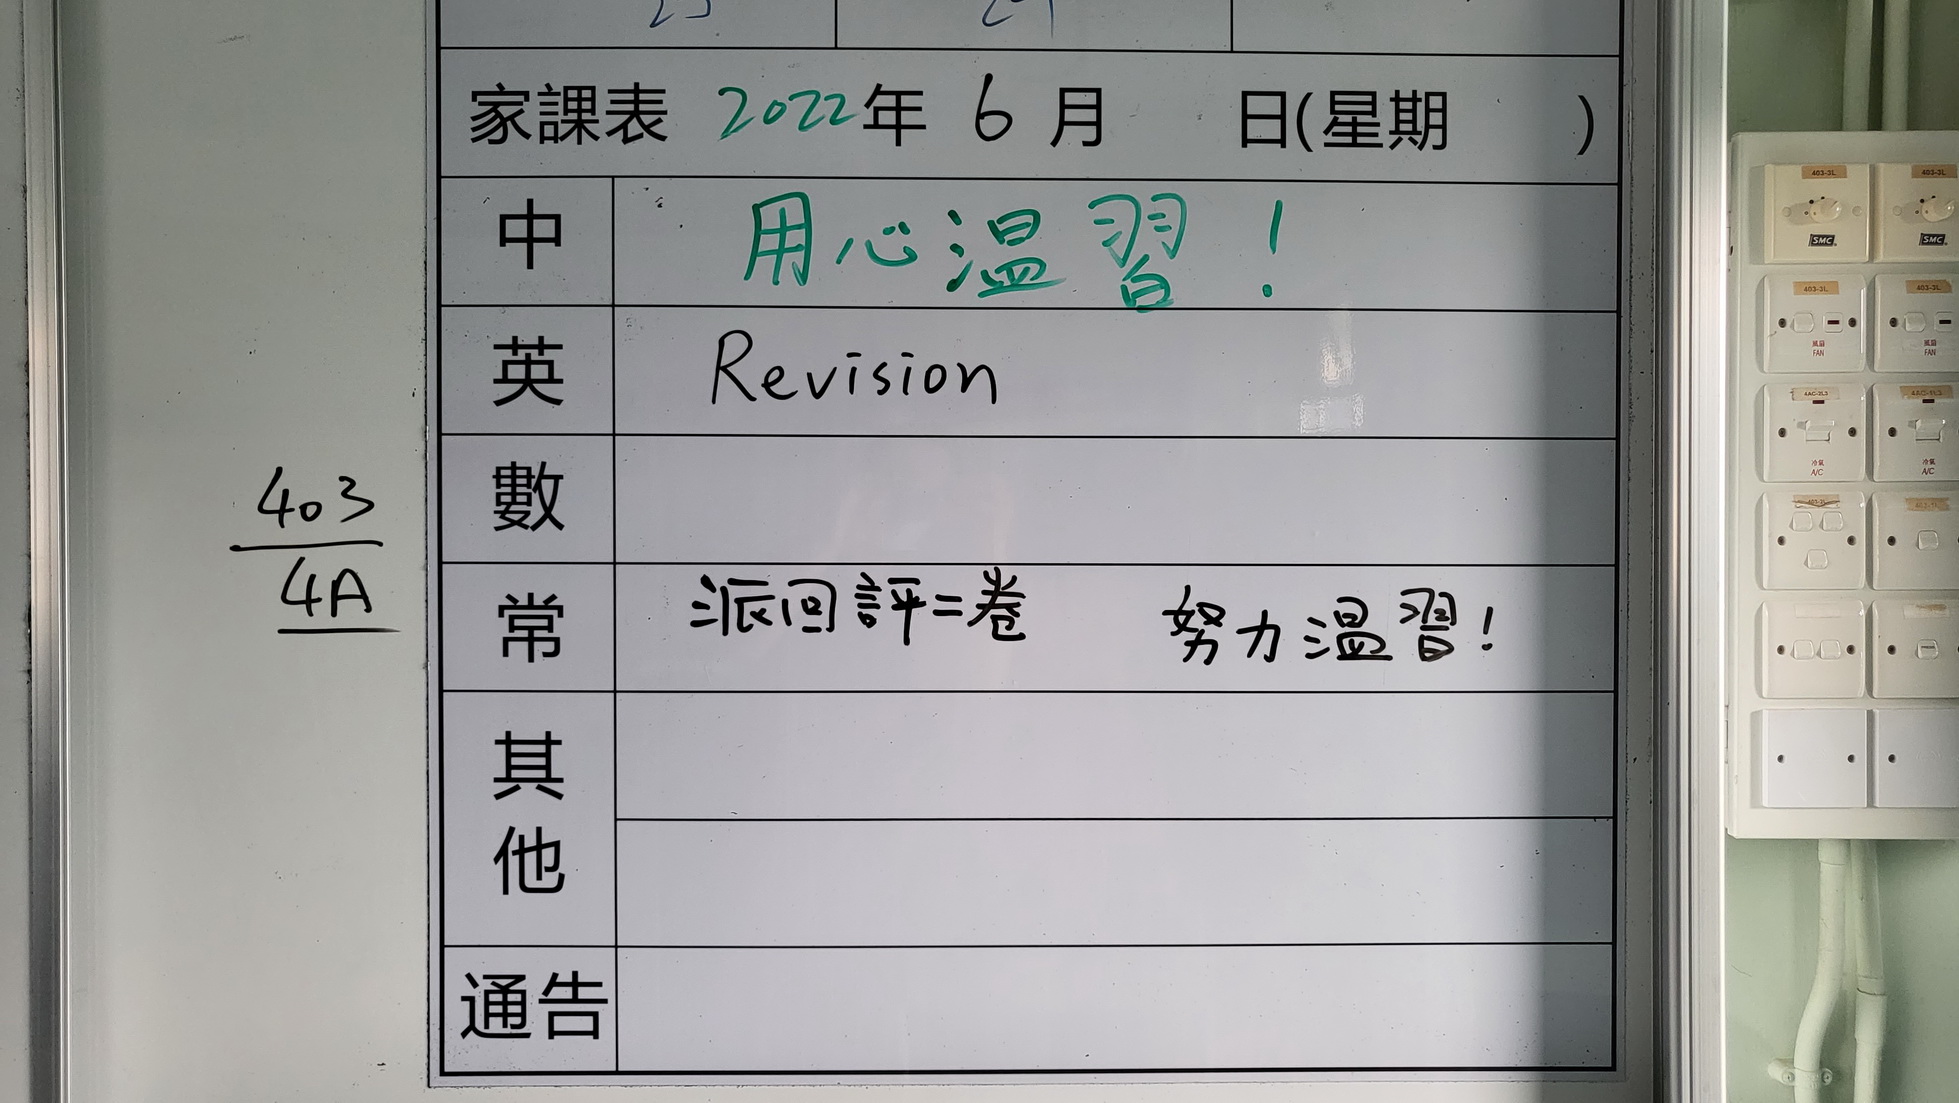 家課表 2022年 6 月 日(星期 )
中 用心温習!
英 Revision
數
403
4A
常 派回評二卷 努力温習!
其他
通告
403-3L 403-3L
SMC SMC
403-3L 403-3L
風扇 風扇
FAN FAN
冷氣 冷氣
A/C A/C